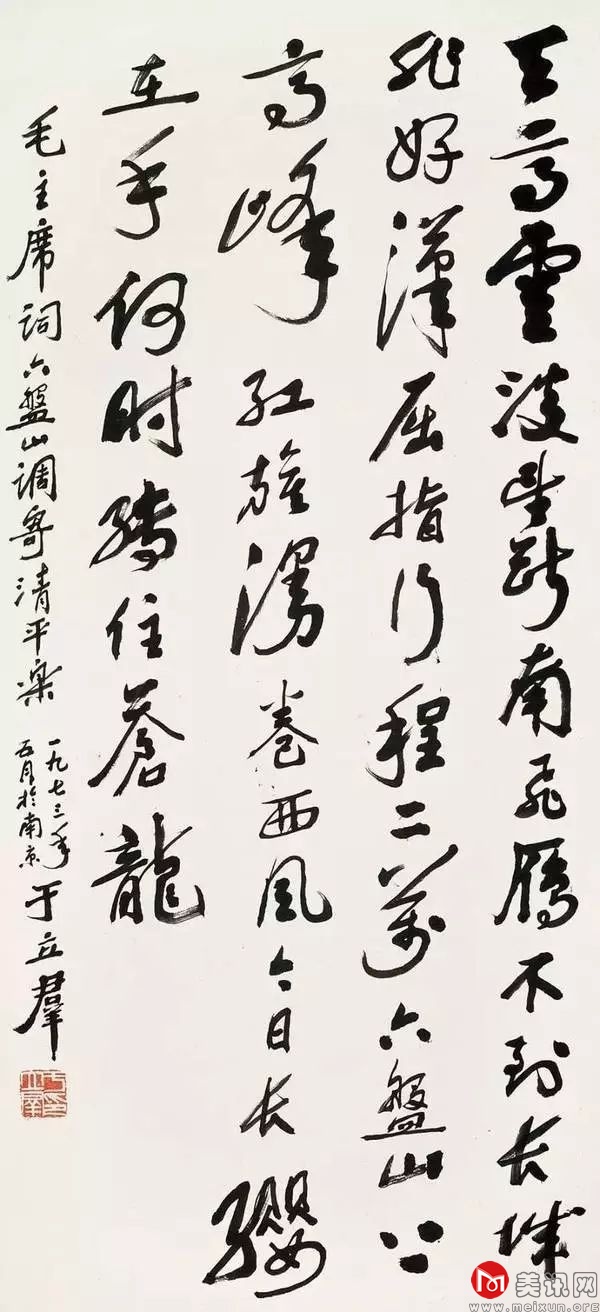 天高雲淡望斷南飛雁不到长城
非好漢屈指行程二萬六盤山上
高峰红旗漫卷西風今日长纓
在手何时縛住蒼龍
毛主席词六盤山调寄清平樂
一九七三年
五月於南京
于立羣
美讯网
www.meixun.org